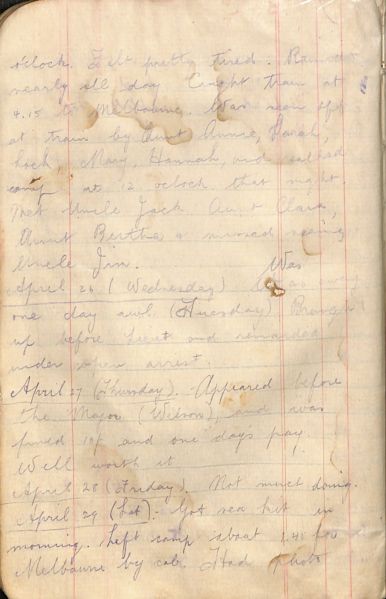 o'clock. Felt pretty tired. Rained
nearly all day. Caught train at
4.15 to Melbourne. Was seen off
at train by Aunt Annie, Sarah,
Mary, Hannah, and reached
camp at 12 oclock that night.
Met Uncle Jack. Clara,
Aunt Bertha & missed seeing
Uncle Jim.
Was
April 26 (Wednesday) away
one day awl. (Tuesday) Brought
up before Lieut and remanded
under open arrest.
April 27 (Thursday). Appeared before
the Major (Wilson), and was
fined and one days pay.
Well worth it
April 28 (Friday) Not much doing.
April 29 (Sat). Got sea kit in
morning. Left camp about for
Melbourne by cab. Had photo